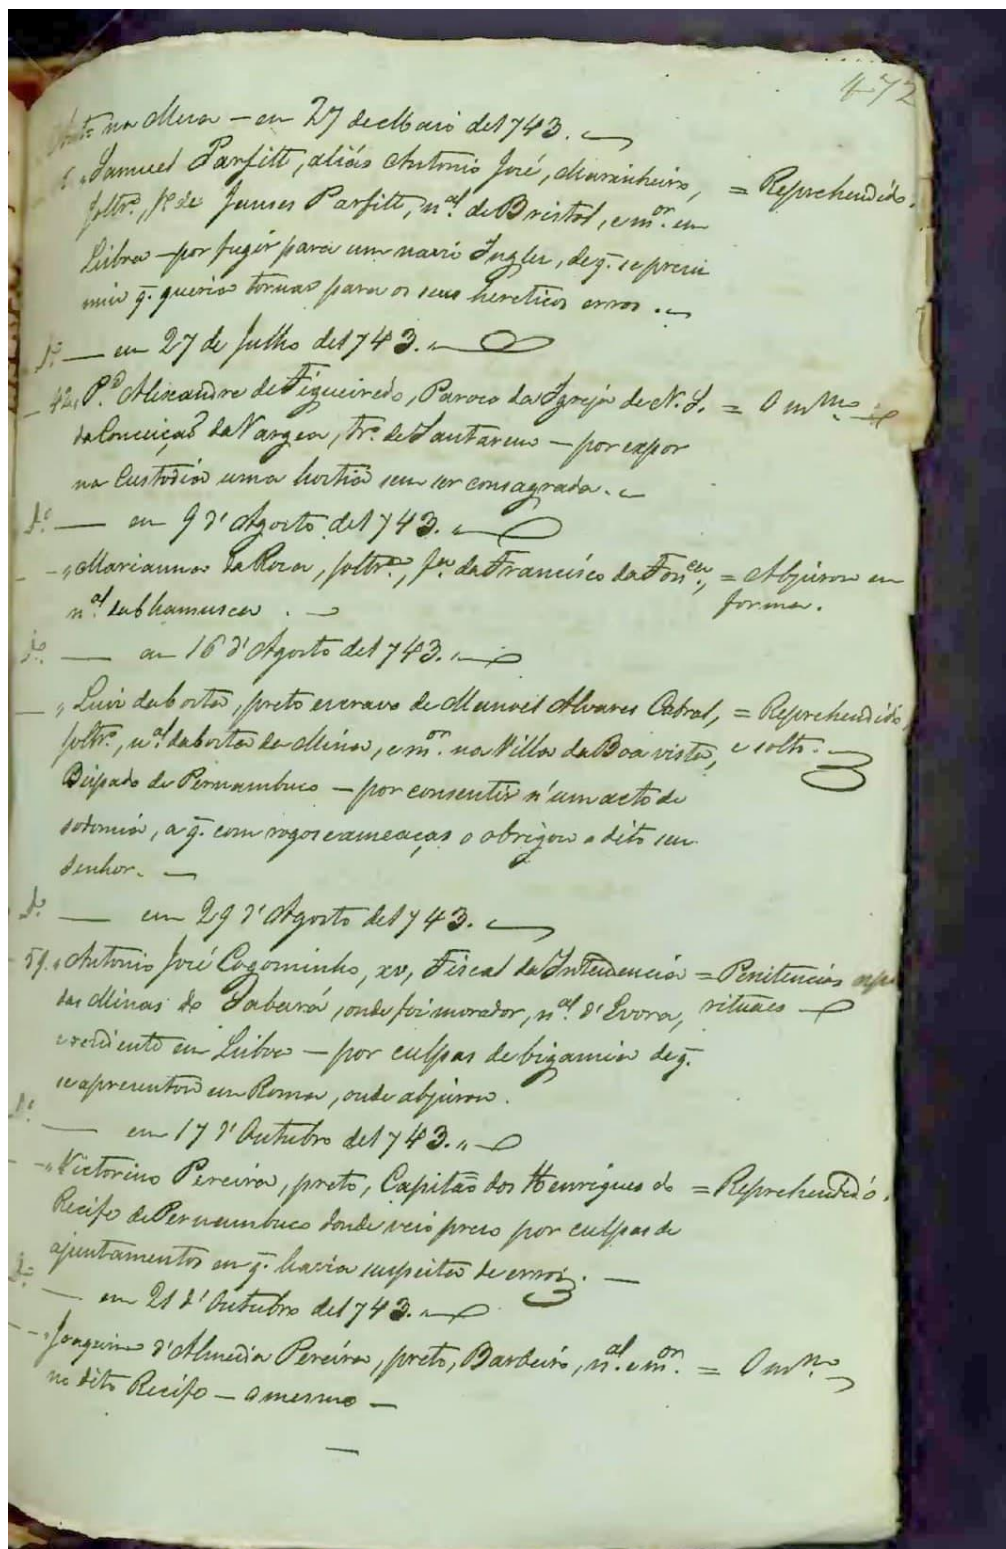 472
na Mesa — em 27 de Maio de 1743.
Samuel Parfitt, aliás Antonio José, Marinheiro, = Reprehendido.
soltrº, fº de James Parfitt, n.al de Bristol, e m.or em
Lisboa — por fugir para um navio Inglez, de q. se presu
mia q. queria tornar para os seus hereticos erros.
Dº — em 27 de Julho de 1743.
42. P.e Alexandre de Figueiredo, Paroco da Igreja de N. S. = O m.mo
da Conceição da Vargea, tr.º de Santarem — por expor
na Custodia uma hostia sem ser consagrada.
Dº — em 9 d'Agosto de 1743.
— " Marianna da Roza, soltrª, fª da Francisco da Fon.ca, = Abjurou em
n.al da Chamusca. forma.
Dº — em 16 d'Agosto de 1743.
— " Luiz da Costa, preto escravo de Manoel Alvares Cabral, = Reprehendido,
soltrº, n.al da Costa da Mina, e m.or na Villa da Boa vista, e solto.
Bispado de Pernambuco — por consentir n'um acto de
sodomia, a q. com rogos e ameaças o obrigou o dito seu
Senhor. —
Dº — em 29 d'Agosto de 1743.
59. " Antonio José Cogominho, xv, Fiscal da Intendencia = Penitencias espi
das Minas do Sabará, onde foi morador, n.al d'Evora, rituaes
e residente em Lisboa — por culpas de bigamia de q.
se apresentou em Roma, onde abjurou.
Dº — em 17 d'Outubro de 1743.
— " Victorino Pereira, preto, Capitão dos Henriques do = Reprehendido.
Recife de Pernambuco donde veio preso por culpas de
ajuntamentos em q. havia suspeita de erros. —
Dº — em 21 d'Outubro de 1743.
— " Joaquim d'Almeida Pereira, preto, Barbeiro, n.al e m.or = O m.mo
no dito Recife — o mesmo —